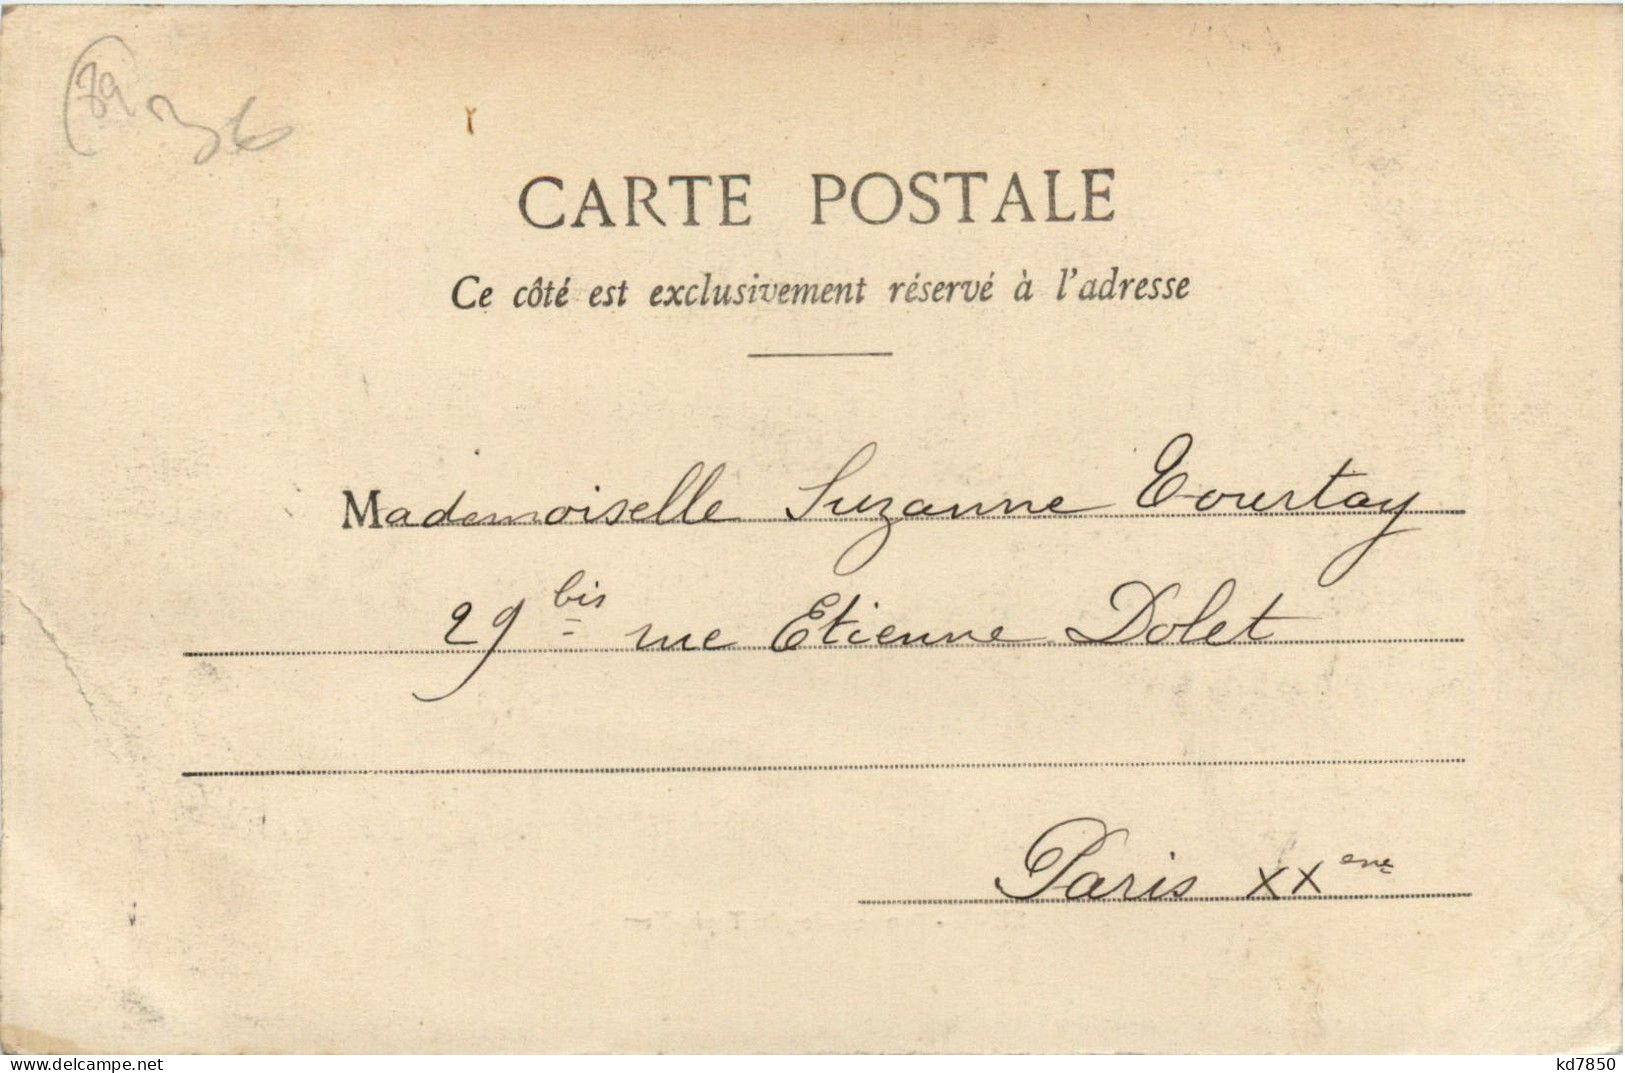 89
36
CARTE POSTALE
Ce côté est exclusivement réservé à l'adresse
Mademoiselle Suzanne Tourtay
29 bis rue Etienne Dolet
Paris XXeme
delcampe.net
kd7850